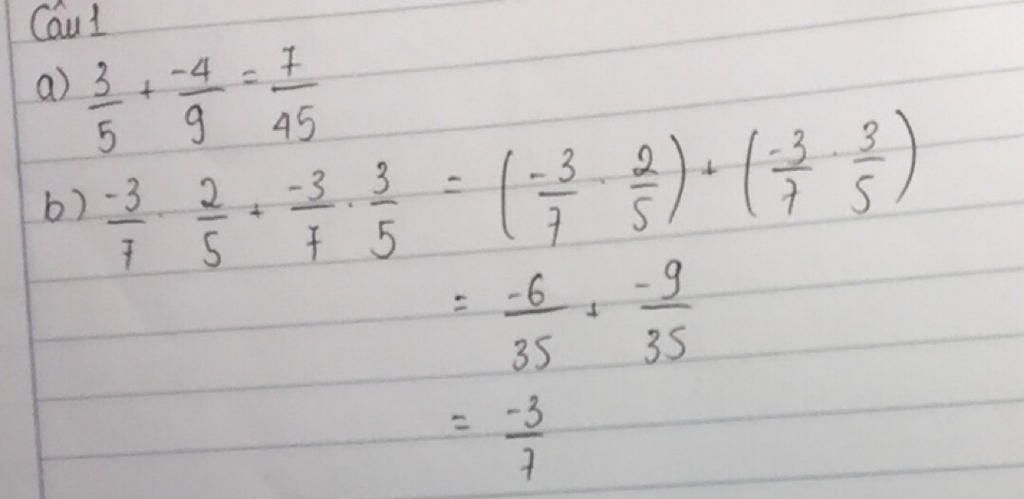 Câu 1
a) 3/5 + -4/9 = 7/45
b) -3/7 . 2/5 + -3/7 . 3/5 = (-3/7 . 2/5) + (-3/7 . 3/5)
= -6/35 + -9/35
= -3/7